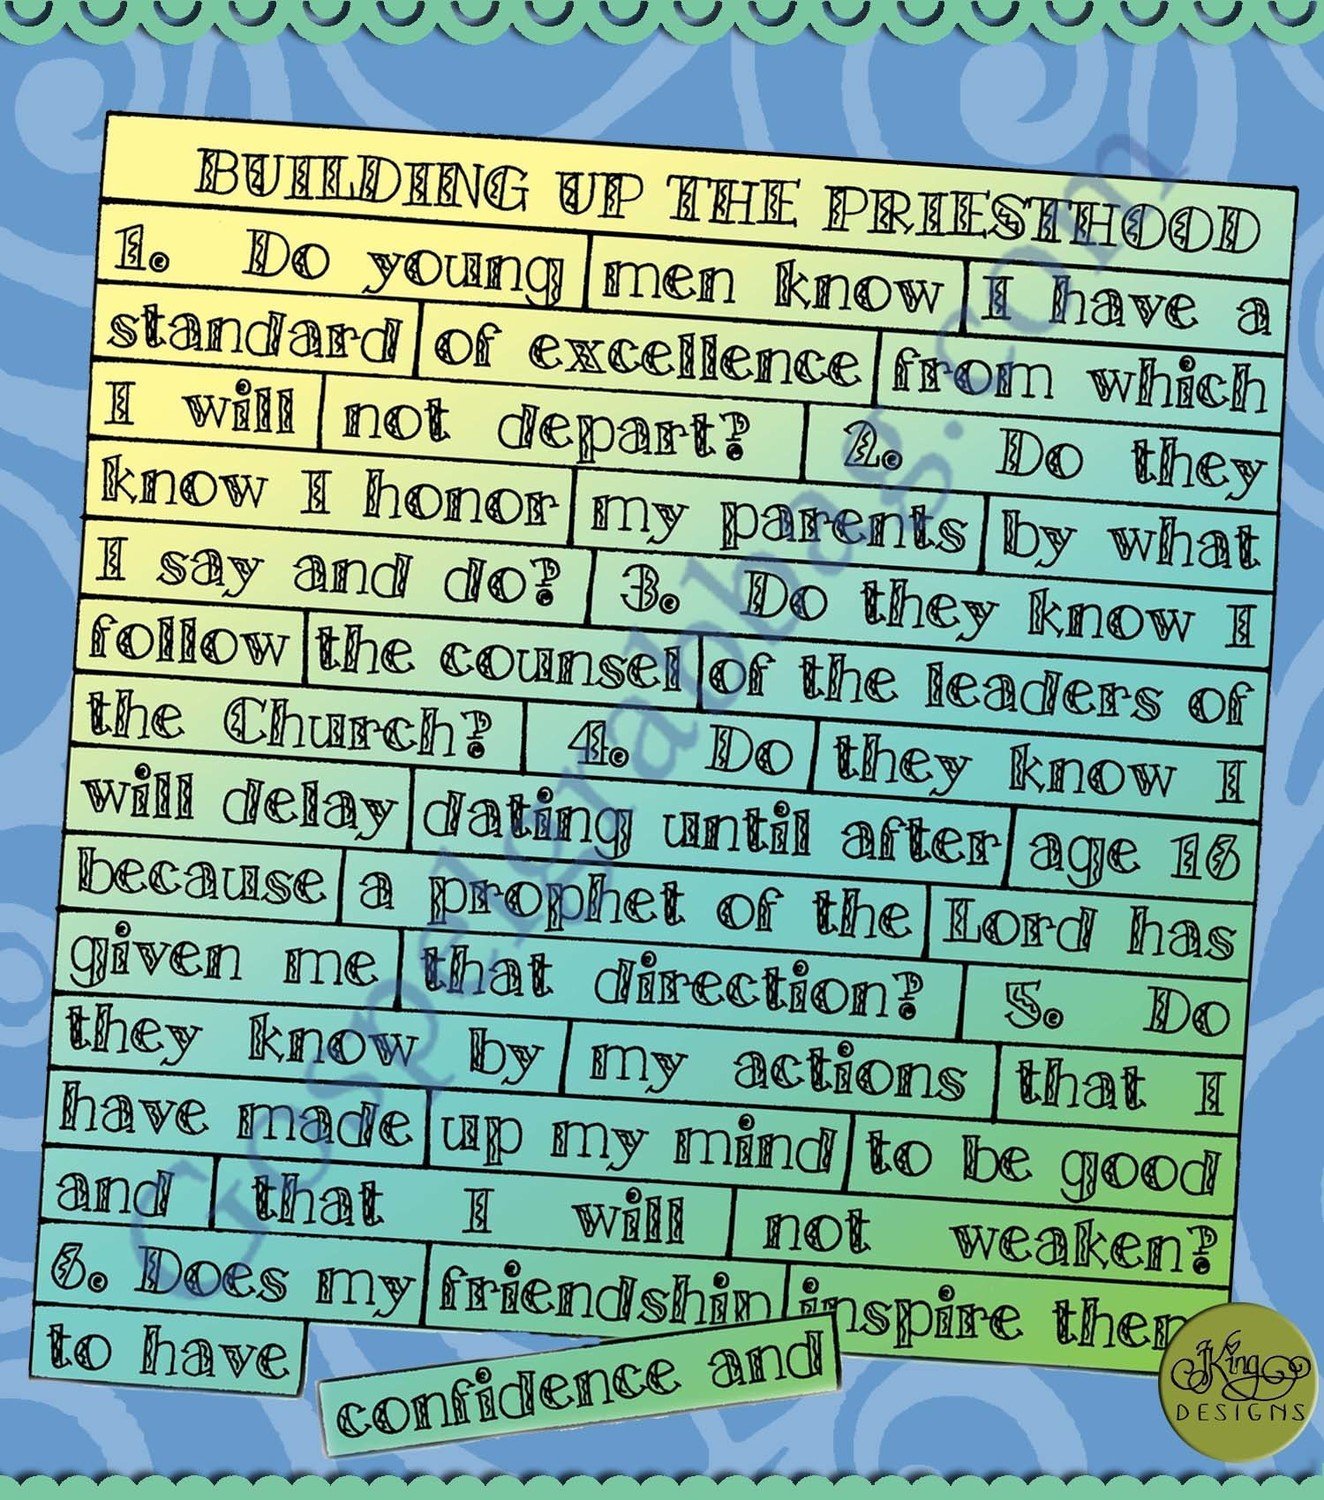 BUILDING UP THE PRIESTHOOD
1. Do young men know I have a
standard of excellence from which
I will not depart? 2. Do they
know I honor my parents by what
I say and do? 3. Do they know I
follow the counsel of the leaders of
the Church? 4. Do they know I
will delay dating until after age 16
because a prophet of the Lord has
given me that direction? 5. Do
they know by my actions that I
have made up my mind to be good
and that I will not weaken?
6. Does my friendship inspire them
to have
confidence and
JKing
DESIGNS
Gospelgrabbag.com